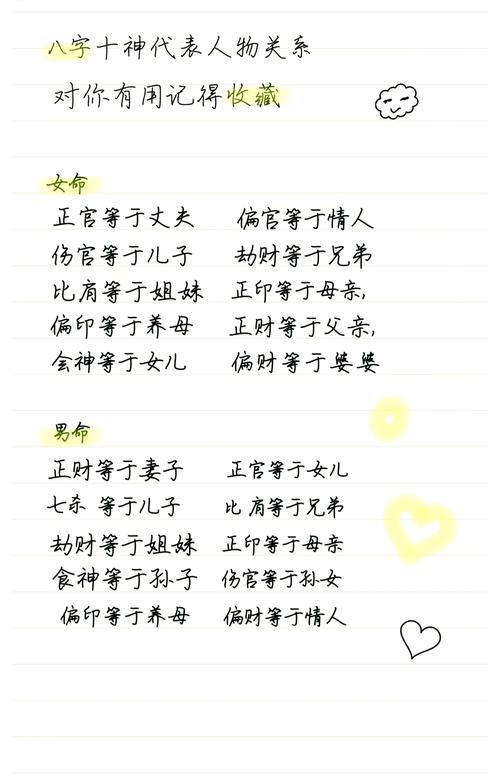 八字十神代表人物关系
对你有用记得收藏
女命
正官等于丈夫 偏官等于情人
伤官等于儿子 劫财等于兄弟
比肩等于姐妹 正印等于母亲,
偏印等于养母 正财等于父亲,
会神等于女儿 偏财等于婆婆
男命
正财等于妻子 正官等于女儿
七杀 等于儿子 比肩等于兄弟
劫财等于姐妹 正印等于母亲
食神等于孙子 伤官等于孙女
偏印等于养母 偏财等于情人